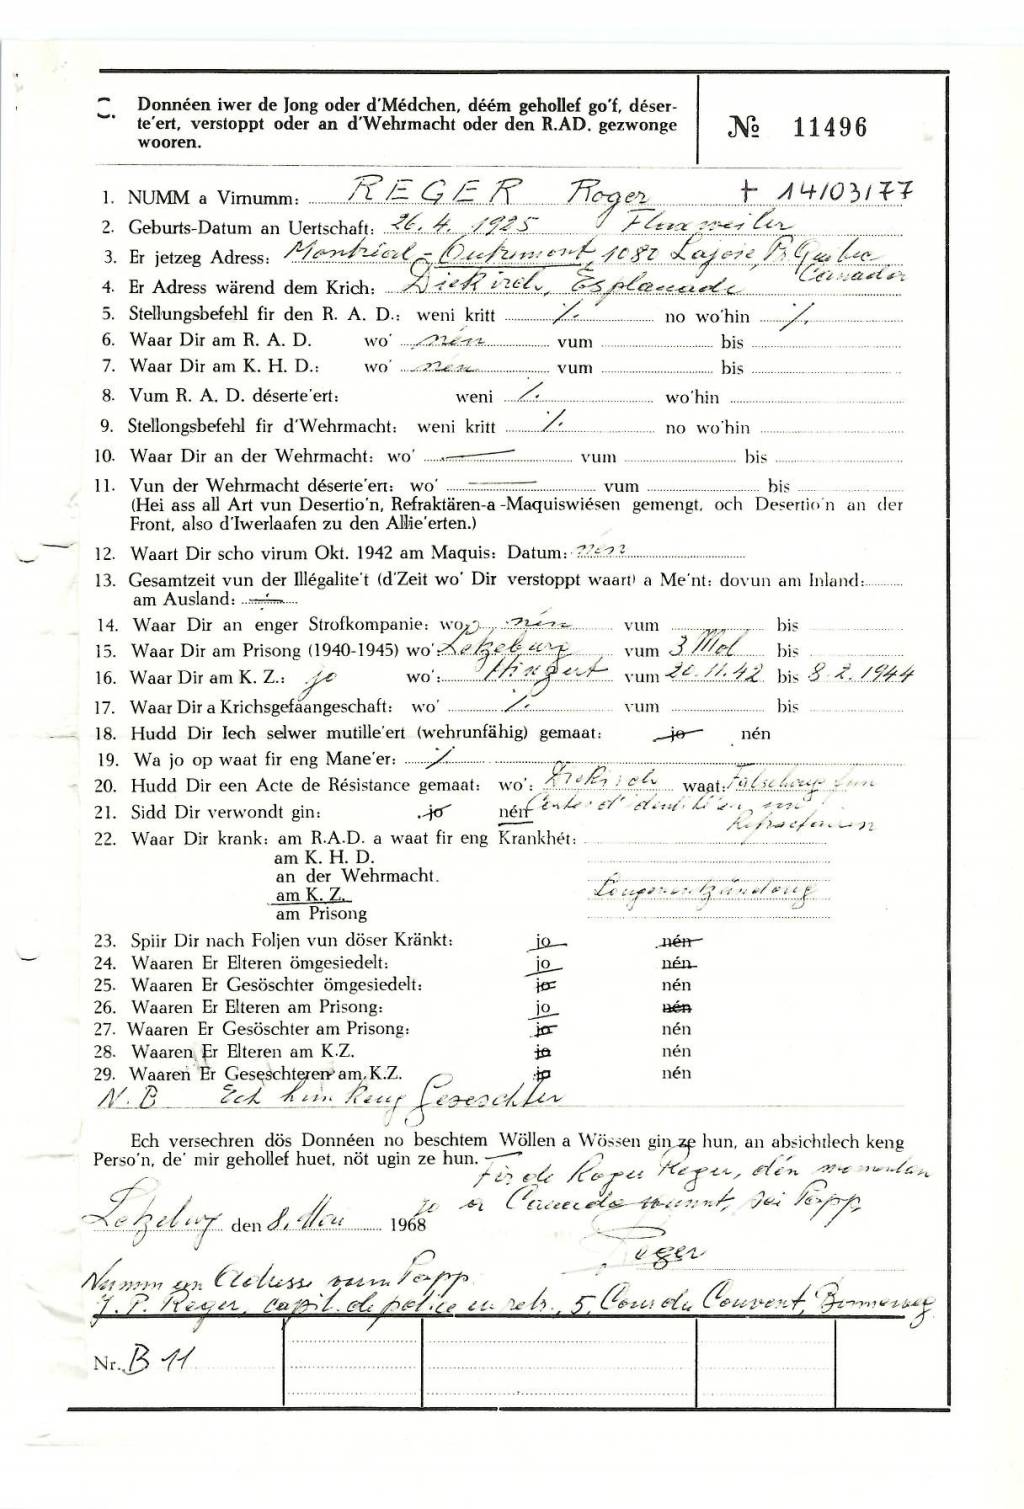 C. Donnéen iwer de Jong oder d'Médchen, déém gehollef go'f, déser-
te'ert, verstoppt oder an d'Wehrmacht oder den R.AD. gezwonge
wooren.
№ 11496
1. NUMM a Virnumm: REGER Roger † 14/03/77
2. Geburts-Datum an Uertschaft: 26. 4. 1925 Flaxweiler
3. Er jetzeg Adress: Montréal - Outremont, 1080 Lajoie, Pr. Québec
Canada
4. Er Adress wärend dem Krich: Diekirch, Esplanade
5. Stellungsbefehl fir den R. A. D.: weni kritt ./. no wo'hin ./.
6. Waar Dir am R. A. D. wo' nén vum bis
7. Waar Dir am K. H. D.: wo' nén vum bis
8. Vum R. A. D. déserte'ert: weni ./. wo'hin
9. Stellongsbefehl fir d'Wehrmacht: weni kritt ./. no wo'hin
10. Waar Dir an der Wehrmacht: wo' — vum bis
11. Vun der Wehrmacht déserte'ert: wo' — vum bis
(Hei ass all Art vun Desertio'n, Refraktären-a -Maquiswiésen gemengt, och Desertio'n an der
Front, also d'Iwerlaafen zu den Allie'erten.)
12. Waart Dir scho virum Okt. 1942 am Maquis: Datum: nén
13. Gesamtzeit vun der Illégalite't (d'Zeit wo' Dir verstoppt waart) a Me'nt: dovun am Inland:
am Ausland: ./.
14. Waar Dir an enger Strofkompanie: wo nén vum bis
15. Waar Dir am Prisong (1940-1945) wo': Letzeburg vum 3 Mol bis
16. Waar Dir am K. Z.: jo wo': Hinzert vum 20.11.42 bis 8.2.1944
17. Waar Dir a Krichsgefaangeschaft: wo' ./. vum bis
18. Hudd Dir Iech selwer mutille'ert (wehrunfähig) gemaat: jo nén
19. Wa jo op waat fir eng Mane'er: ./.
20. Hudd Dir een Acte de Résistance gemaat: wo': Diekirch waat: Fälschung fun
21. Sidd Dir verwondt gin: jo nén Cartes d'identité'en
Refractairen
22. Waar Dir krank: am R.A.D. a waat fir eng Krankhét:
am K. H. D.
an der Wehrmacht.
am K. Z. Longenentzündong
am Prisong
23. Spiir Dir nach Foljen vun döser Kränkt: jo nén
24. Waaren Er Elteren ömgesiedelt: jo nén
25. Waaren Er Gesöschter ömgesiedelt: jo nén
26. Waaren Er Elteren am Prisong: jo nén
27. Waaren Er Gesöschter am Prisong: jo nén
28. Waaren Er Elteren am K.Z. jo nén
29. Waaren Er Geseschteren am K.Z. jo nén
N. B Ech hun keng Geseschter
Ech versechren dös Donnéen no beschtem Wöllen a Wössen gin ze hun, an absichtlech keng
Perso'n, de' mir gehollef huet, nöt ugin ze hun.
Fir de Roger Reger, dén momentan
jo a Canada wunnt, sei Papp
Letzeburg den 8. Mai 1968
Reger
Numm an Adresse vum Papp
J. P. Reger, capit. de police en retr., 5, Cour du Couvent, Bonneweg
Nr. B 11